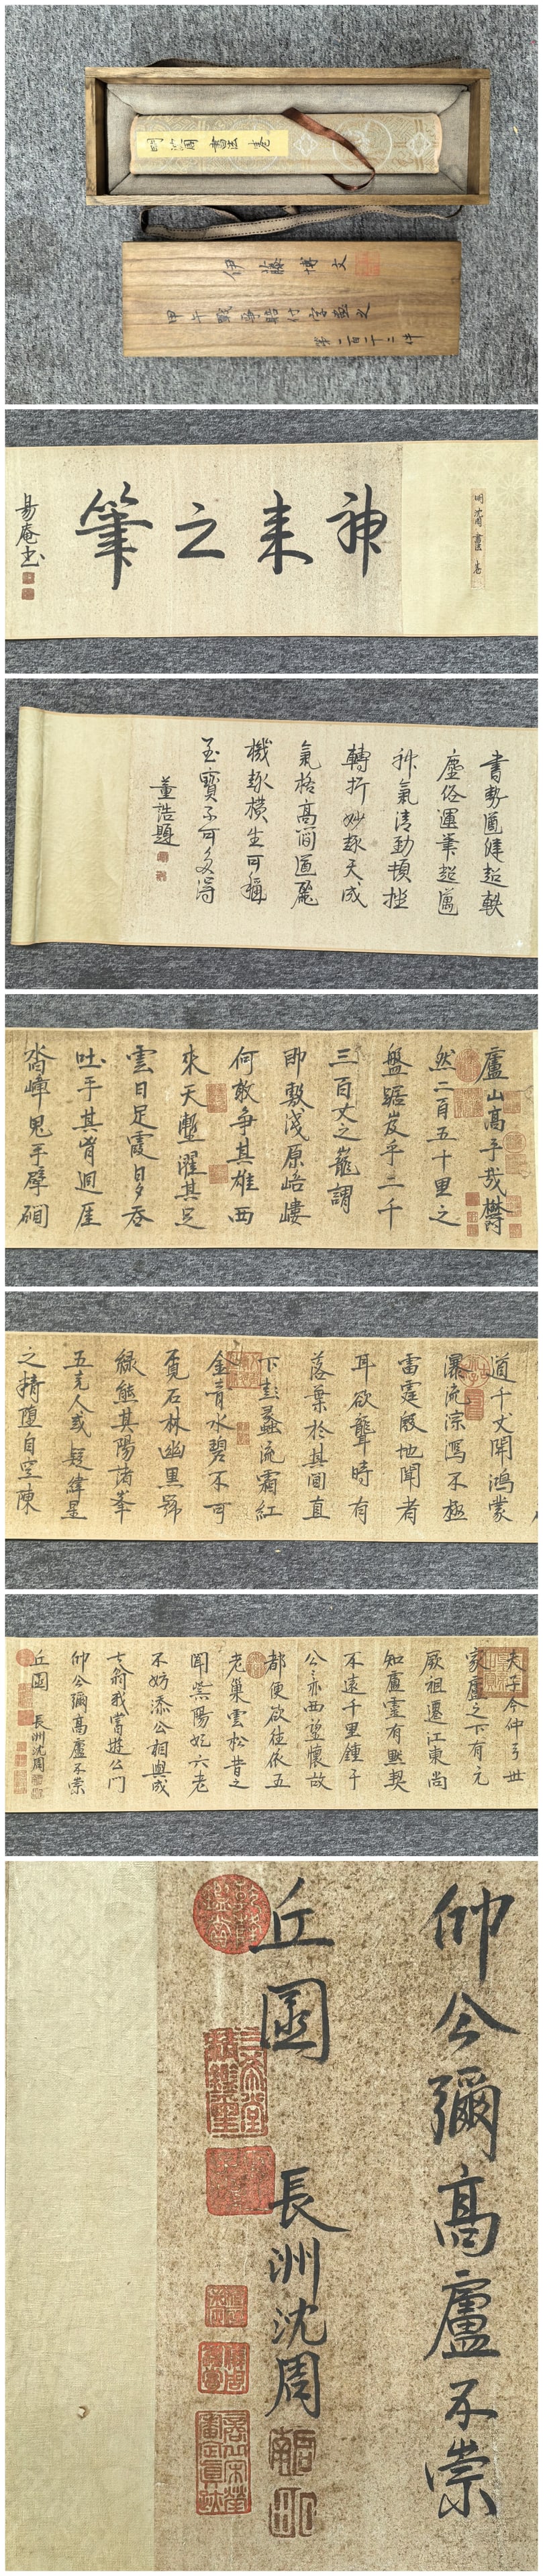 明沈周書法卷
伊藤博文
甲午戰爭賠付字畫之
第一百二十二件
明沈周書法卷
神来之筆
易庵书
書勢遒健超軼
塵俗運筆超邁
神氣清勁頓挫
轉折妙趣天成
氣格高簡遒麗
機趣橫生可稱
至寶不可多得
董誥題
廬山高乎哉鬱
然二百五十里之
盤踞岌乎二千
三百丈之巃謂
即敷淺原峿嶁
何敢爭其雄西
來天塹濯其足
雲日足霞日夕吞
吐乎其胷迴厓
沓嶂鬼手擘磵
道千丈開鴻蒙
瀑流淙瀉不極
雷霆殷地聞者
耳欲聾時有
落葉於其間直
下彭蠡流霜紅
金膏水碧不可
覔石林幽黑號
綠熊其陽諸峯
五老人或疑緯星
之精墮自空陳
夫子今仲弓世
家廬之下有元
厥祖遷江東尚
知廬靈有默契
不遠千里鍾于
公亦西望懷故
都便欲往依五
老巢雲松昔之
聞紫陽妃六老
不妨添公相與成
七翁我當遊公門
仰公彌高廬不崇
丘園 長洲沈周
仰公彌高廬不崇
丘園
長洲沈周